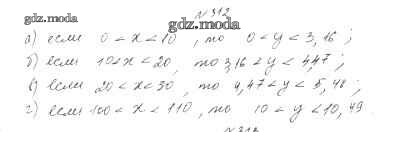 № 312
gdz.moda
gdz.moda
а) если 0 < x < 10 , то 0 < y < 3,16 ;
б) если 10 < x < 20, то 3,16 < y < 4,47 ;
в) если 20 < x < 30 , то 4,47 < y < 5,48 ;
г) если 100 < x < 110 , то 10 < y < 10,49